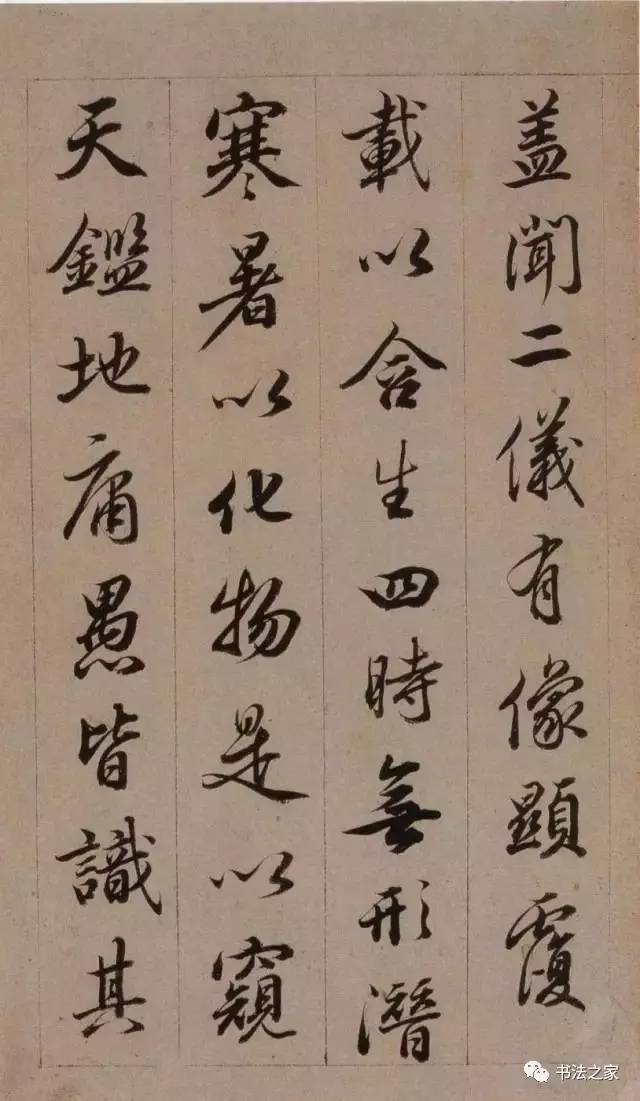 盖聞二儀有像顯覆
載以含生四時無形潛
寒暑以化物是以窺
天鑑地庸愚皆識其
书法之家